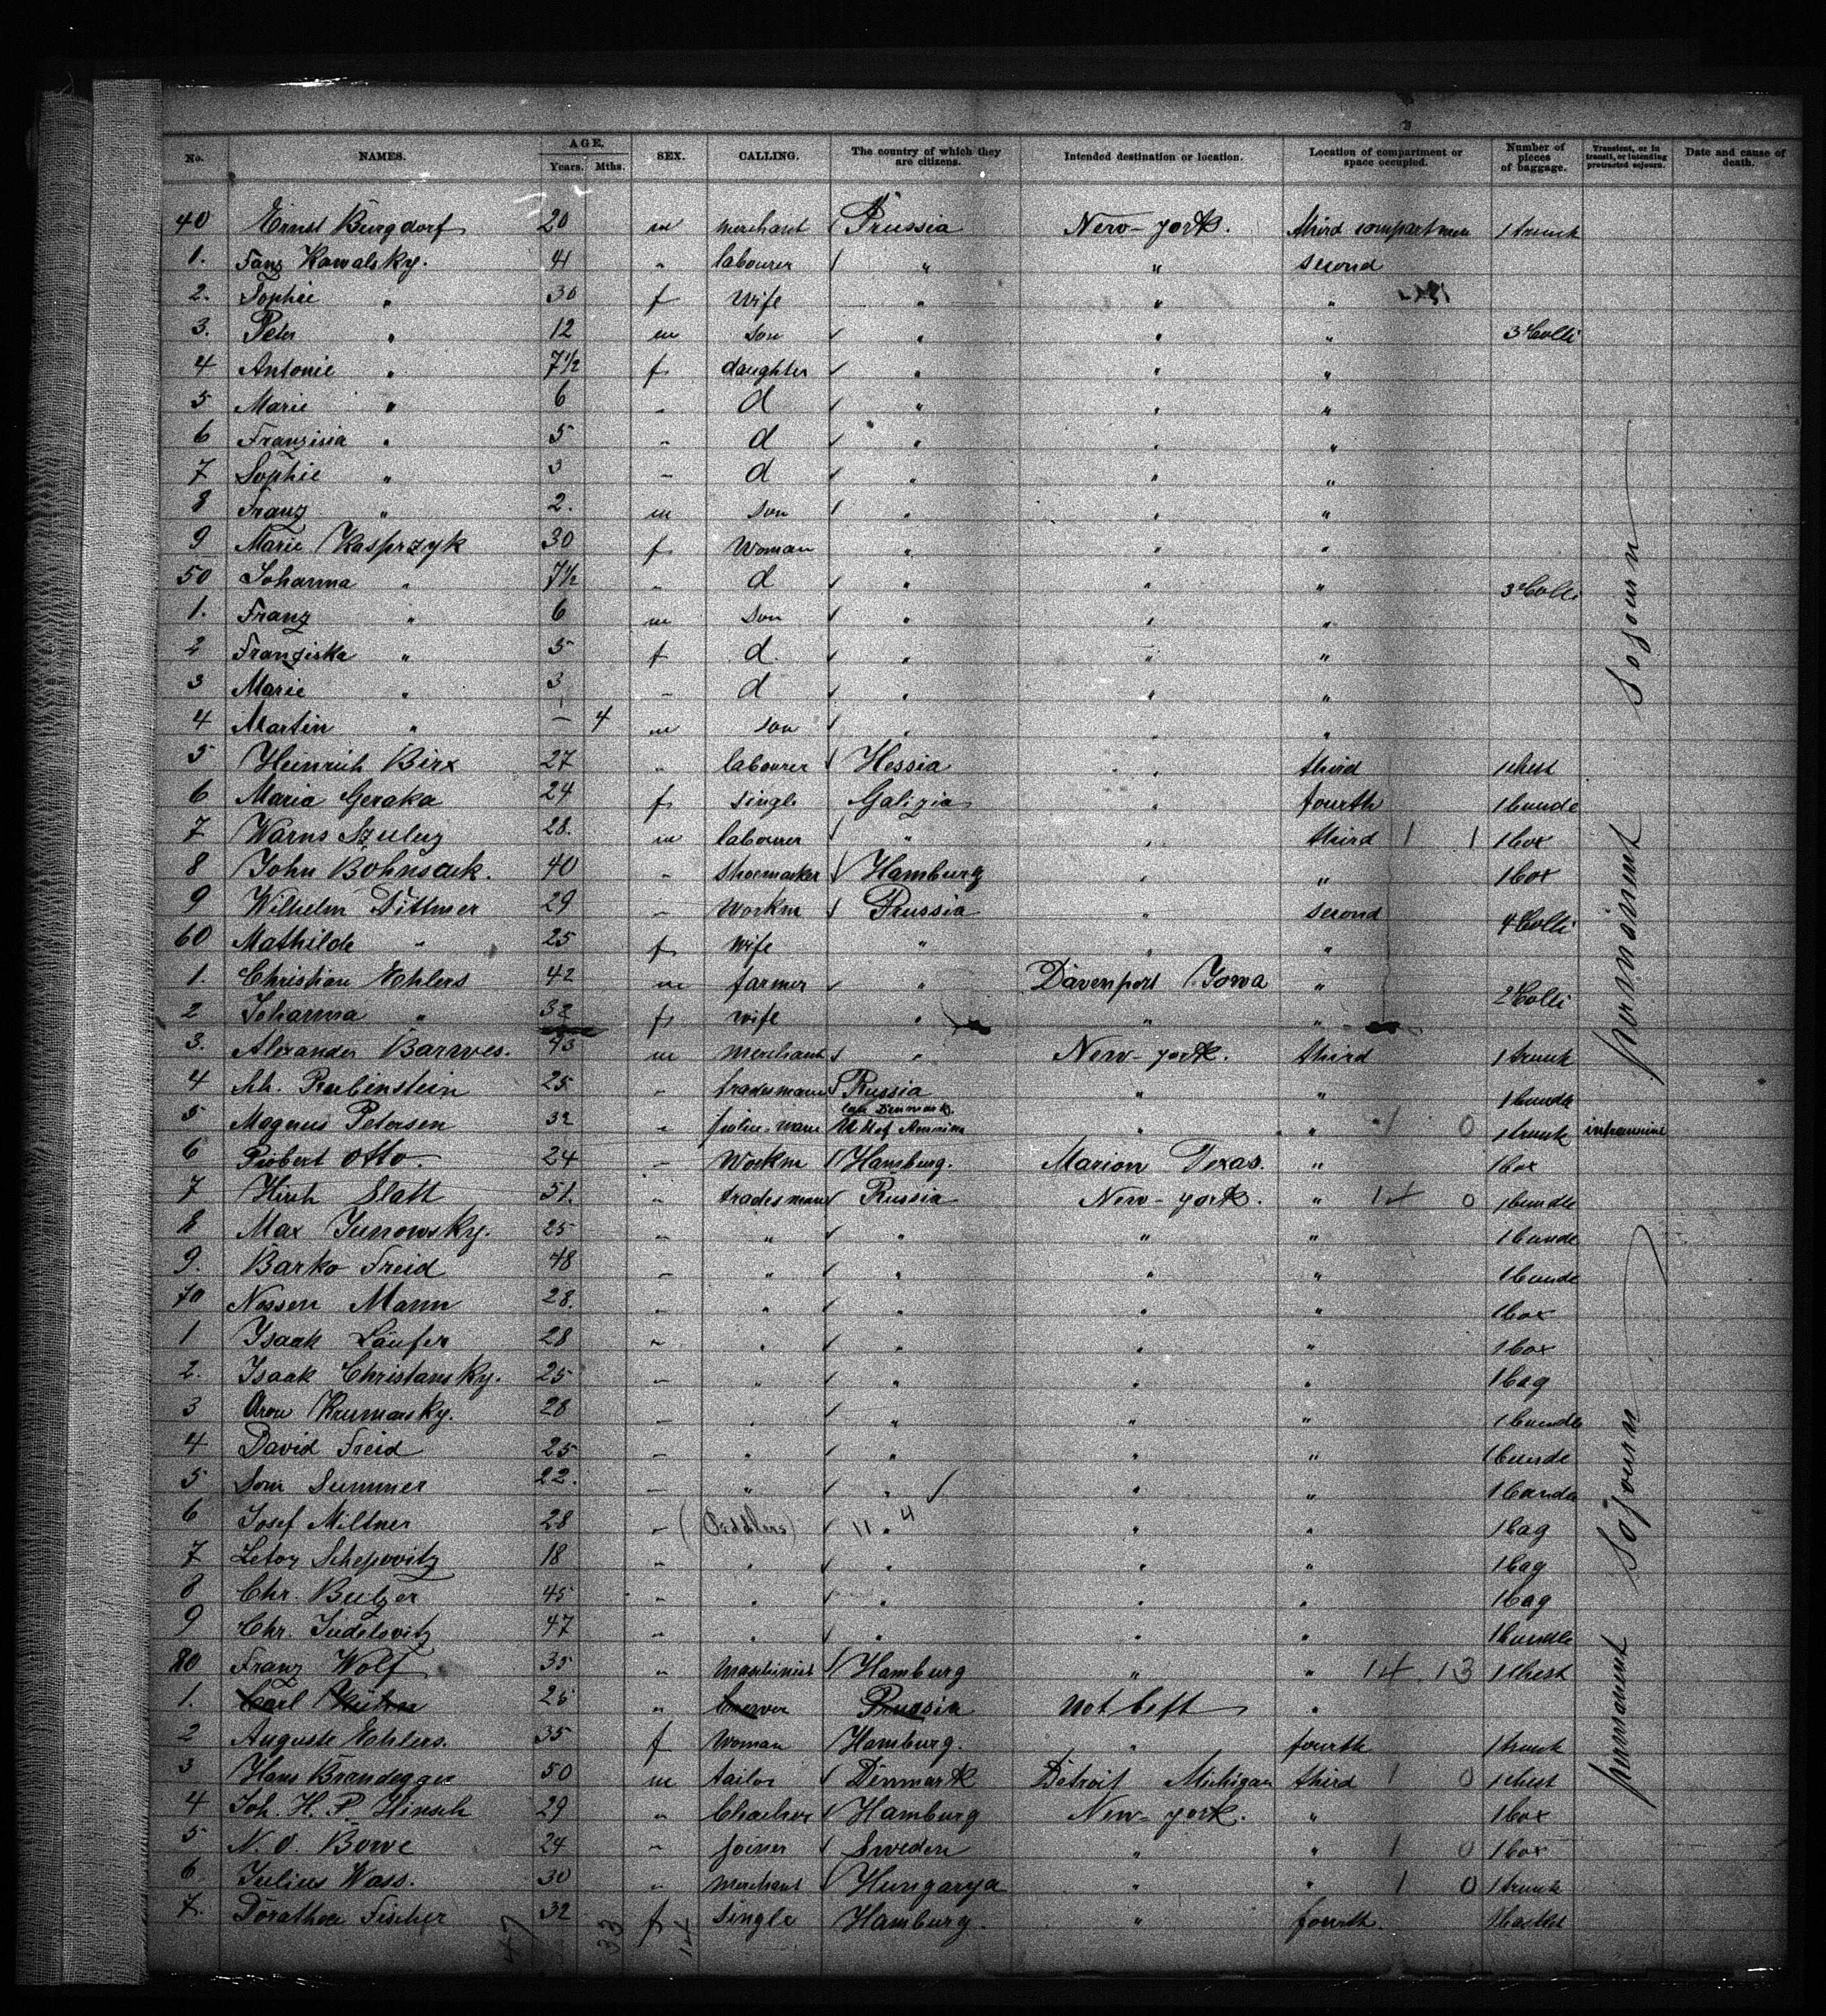 No. NAMES. AGE. Years. Mths. SEX. CALLING. The country of which they are citizens. Intended destination or location. Location of compartment or space occupied. Number of pieces of baggage. Transient, or in transit, or intending protracted sojourn. Date and cause of death.
40 Ernst Burgdorf 20 m merchant Prussia New-york. third compartmen 1 trunk
1. Kowalsky. 41 " labourer " " second
2. Sophie " 30 f wife " " "
3. Peter " 12 m son " " " 3 Colli
4 Antonie " 7 1/2 f daughter " " "
5 Marie " 6 " d " " "
6 " 5 " d " " "
7 Sophie " 3 " d " " "
8 Franz " 2. m son " " "
9 Marie Kasprzyk 30 f Woman " " "
50 Johanna " 7 1/2 " d " " " 3 Colli
1. Franz " 6 m son " " "
2 Franziska " 5 f d. " " "
3 Marie " 3 " d " " "
4 Martin " — 4 m son " " "
5 Heinrich Birx 27 " labourer Hessia " third 1 chest
6 Maria Geraka 24 f single Galizia " fourth 1 bunde
7 28. m labourer " " third 1 1 1 box
8 John Bohnsack. 40 " shoemacker Hamburg " " 1 box
9 Wilhelm Dittmer 29 " Workm Prussia " second 4 Colli
60 Mathilde " 25 f wife " " "
1. Christian Eehlers 42 m farmer " Davenport Iowa " 2 Colli
2 Johanna " 32 f wife " " "
3. Alexander 43 m merchant " New-york. third 1 trunk
4 Rubinstein 25 " tradesmann Russia " " 1 bunde
5 Magnus Petersen 32 " late Denmark. U St of America " " 1 0 1 trunk
6 Robert Otto. 24 " Workm Hamburg. Marion Texas. " 1 box
7 Hirsh Slatt 51. " tradesmann Russia New-york. " 0 1 bundle
8 Max Junowsky. 25 " " " " " 1 bunde
9. Barko Freid 48 " " " " " 1 bunde
70 Nossen Mann 28. " " " " " 1 box
1 Isaak Laufer 28 " " " " " 1 box
2. Isaak Christansky. 25 " " " " " 1 bag
3 Aron Krumarsky. 28 " " " " " 1 bundle
4 David Freid 25 " " " " " 1 bunde
5 Som Summer 22. " " " " " 1 bunde
6 Josef Miltner 28 " (Peddlers) 11 " 4 " " 1 bag
7 Schepovitz 18 " " " " " 1 bag
8 Chr. Bulzer 45 " " " " " 1 bag
9 Chr. Judelovitz 47 " " " " " 1 bundle
80 Franz Wolf 35 " Maschinist Hamburg " " 14 13 1 Chest
1. Carl 25 " Prussia not left "
2 Auguste Eehlers. 35 f Woman Hamburg. " fourth 1 trunk
3 Hans Brandegger 50 m tailor Denmark Detroit Michigan third 1 0 1 chest
4 Joh. H. P. Hinsch 29 " Hamburg New-york. " 1 box
5 N. O. Bowe 24 " joiner Sweden " " 1 0 1 box
6 Julius Wass. 30 " merchant Hungarya " " 1 0 1 trunk
7. Dorathea Fischer 32 f single Hamburg. " fourth.
47 33 14
permanent sojourn
permanent sojourn